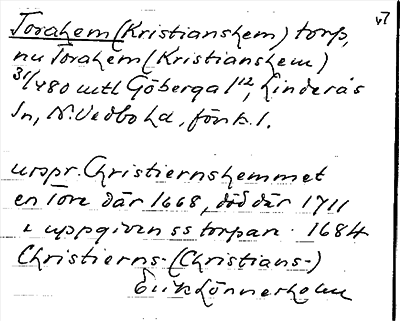 Torahem (Kristianshem) torp,
nu Torahem (Kristianshem)
31/480 mtl Göberga 1¹², Linderås
sn, N. Vedbo hd, Jönk. l.
urspr. Christiernshemmet
en Tore där 1668, död där 1711
i uppgiven ss torpare 1684
Christierns- (Christians-)
Erik Lönnerholm